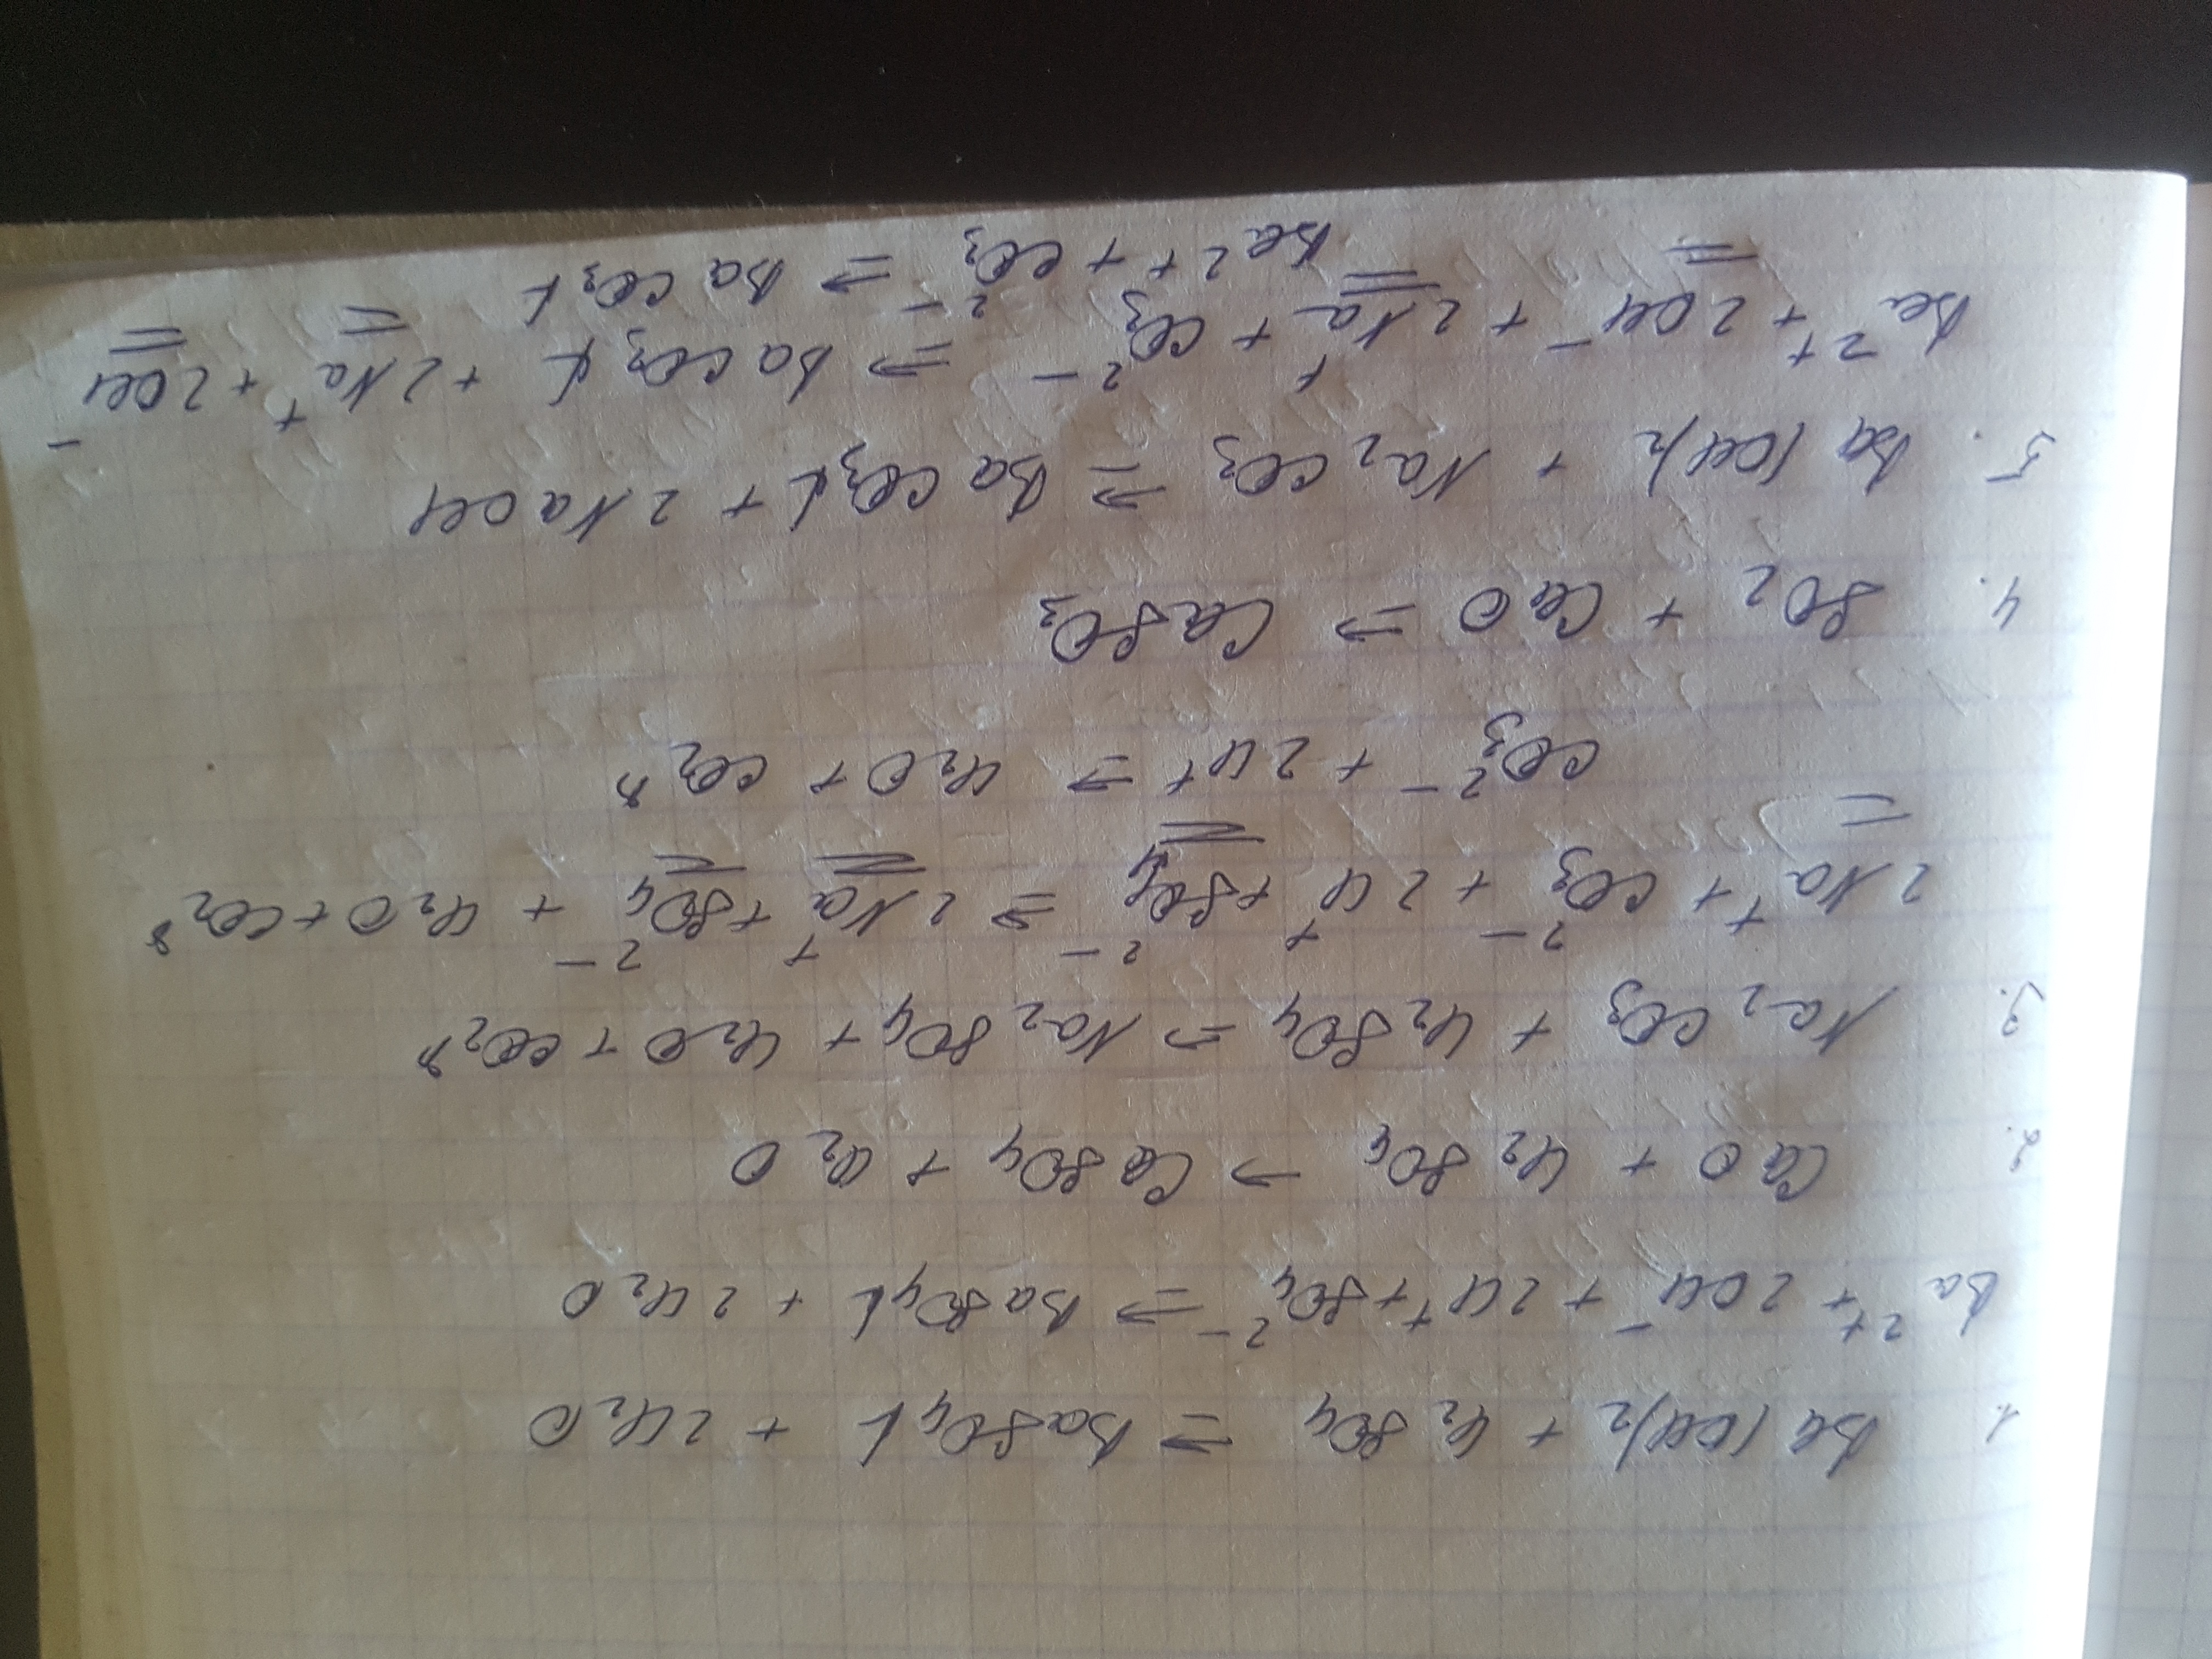 1. Ba(OH)₂ + H₂SO₄ => BaSO₄↓ + 2H₂O
Ba²⁺ + 2OH⁻ + 2H⁺ + SO₄²⁻ => BaSO₄↓ + 2H₂O
2. CaO + H₂SO₄ → CaSO₄ + H₂O
3. Na₂CO₃ + H₂SO₄ => Na₂SO₄ + H₂O + CO₂↑
2Na⁺ + CO₃²⁻ + 2H⁺ + SO₄²⁻ => 2Na⁺ + SO₄²⁻ + H₂O + CO₂↑
CO₃²⁻ + 2H⁺ => H₂O + CO₂↑
4. SO₂ + CaO => CaSO₃
5. Ba(OH)₂ + Na₂CO₃ => BaCO₃↓ + 2NaOH
Ba²⁺ + 2OH⁻ + 2Na⁺ + CO₃²⁻ => BaCO₃↓ + 2Na⁺ + 2OH⁻
Ba²⁺ + CO₃²⁻ => BaCO₃↓